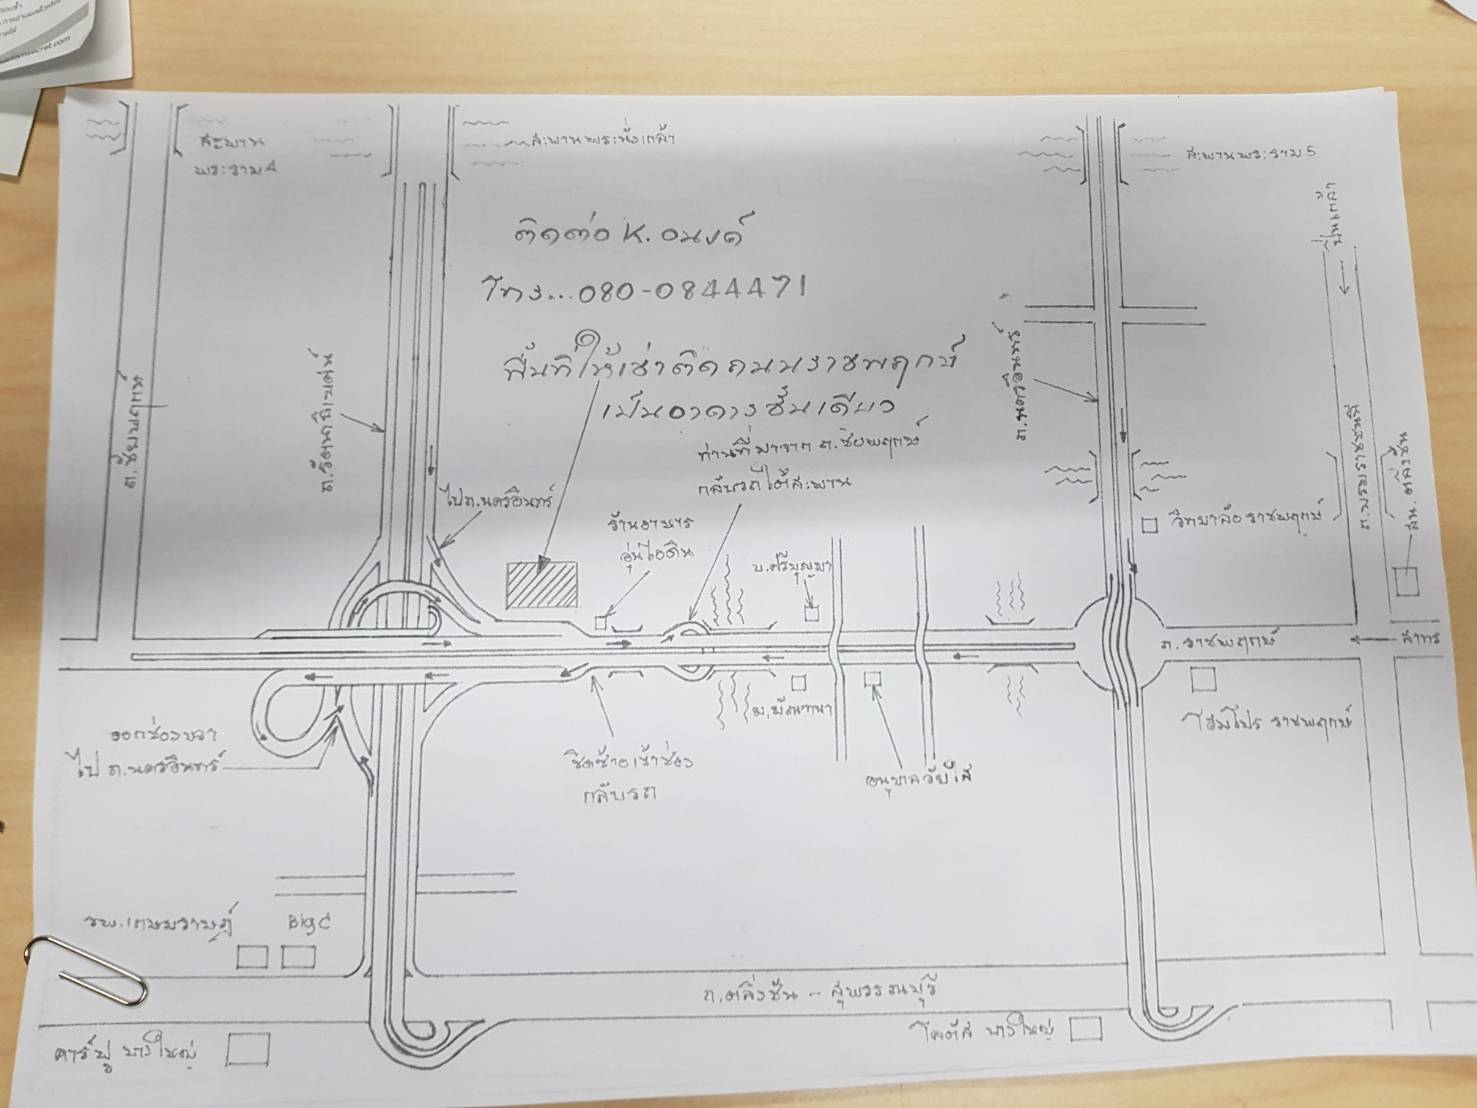 สะพาน
พระราม4
สะพานพระนั่งเกล้า
สะพานพระราม5
ปิ่นเกล้า
ติดต่อ K. อนงค์
โทร... 080-0844471
พื้นที่ให้เช่าติดถนนราชพฤกษ์
เป็นอาคารชั้นเดียว
ท่านที่มาจาก ถ.ชัยพฤกษ์
กลับรถใต้สะพาน
ถ.ชัยพฤกษ์
ถ.รัตนาธิเบศน์
ถ.นครอินทร์
ถ.บรมราชชนนี
สน.ตลิ่งชัน
ไปถ.นครอินทร์
ร้านอาหาร
อุ่นไอดิน
บ.ศรีบุญมา
วิทยาลัยราชพฤกษ์
ถ.ราชพฤกษ์
สาทร
ม.มัณฑนา
โฮมโปร ราชพฤกษ์
ออกช่องขวา
ไป ถ.นครอินทร์
ชิดซ้ายเข้าช่อง
กลับรถ
อนุบาลวัยใส
รพ.เกษมราษฎ์
Big C
ถ.ตลิ่งชัน - สุพรรณบุรี
คาร์ฟู บางใหญ่
โลตัส บางใหญ่